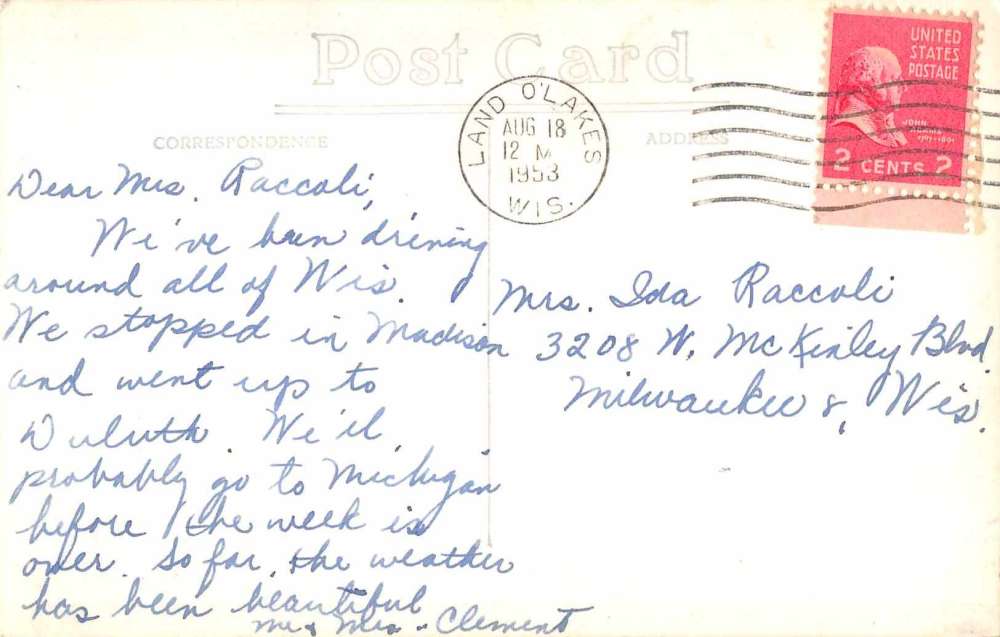 Post Card
CORRESPONDENCE
ADDRESS
LAND O'LAKES
AUG 18
12 M
1953
WIS.
UNITED
STATES
POSTAGE
JOHN
ADAMS
2 CENTS 2
Dear Mrs. Raccoli,
We've been driving
around all of Wis.
We stopped in Madison
and went up to
Duluth. We'll
probably go to Michigan
before the week is
over. So far, the weather
has been beautiful
Mr & Mrs. Clement
Mrs. Ida Raccoli
3208 W. McKinley Blvd.
Milwaukee 8, Wis.